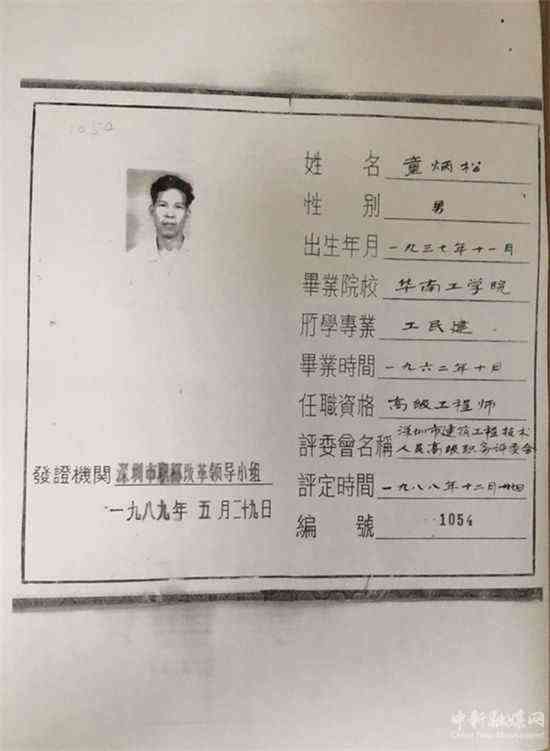 1054
姓 名 童炳松
性 別 男
出生年月 一九三七年十一月
畢業院校 华南工学院
所學專業 工民建
畢業時間 一九六二年十月
任職資格 高級工程师
評委會名稱 深圳市建筑工程技术
人員高级职务评委会
評定時間 一九八八年十二月卅日
編 號 1054
發證機關 深圳市职称改革领导小组
一九八九年 五 月二十九日
中新融媒网
China New Management